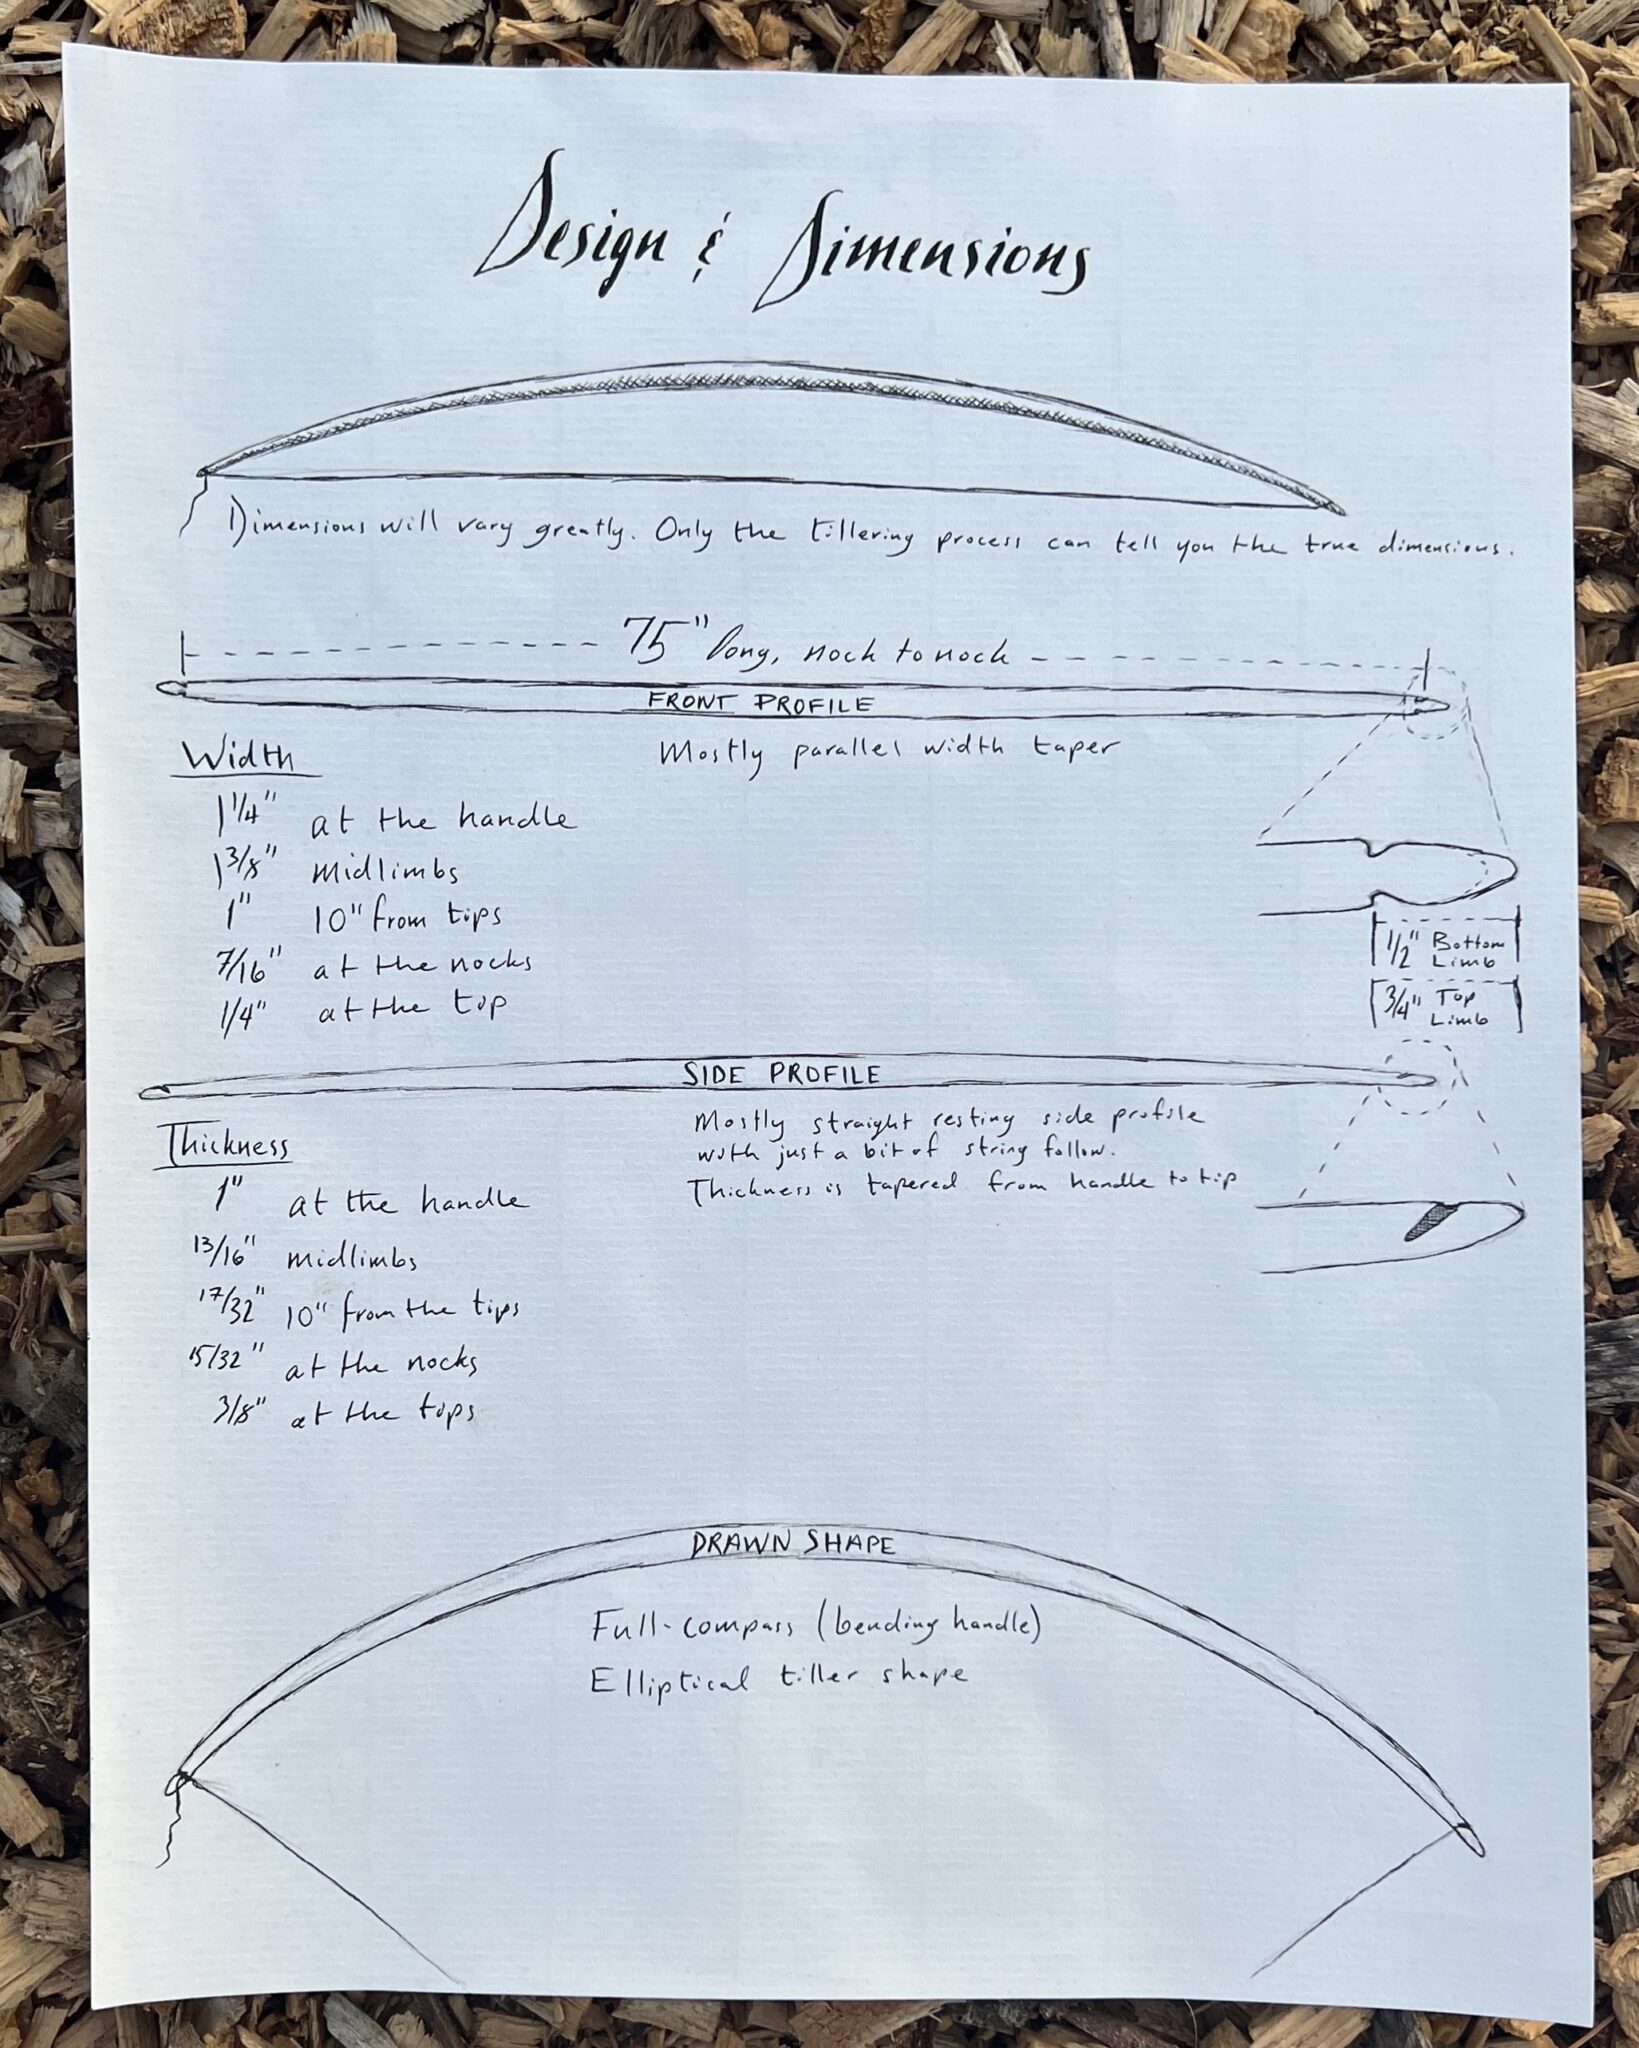 Design & Dimensions
Dimensions will vary greatly. Only the tillering process can tell you the true dimensions.
75" long, nock to nock
FRONT PROFILE
Mostly parallel width taper
Width
1 1/4" at the handle
1 3/8" midlimbs
1" 10" from tips
7/16" at the nocks
1/4" at the tip
1/2" Bottom
Limb
3/4" Top
Limb
SIDE PROFILE
Mostly straight resting side profile
with just a bit of string follow.
Thickness is tapered from handle to tip
Thickness
1" at the handle
13/16" midlimbs
17/32" 10" from the tips
15/32" at the nocks
3/8" at the tips
DRAWN SHAPE
Full-compass (bending handle)
Elliptical tiller shape